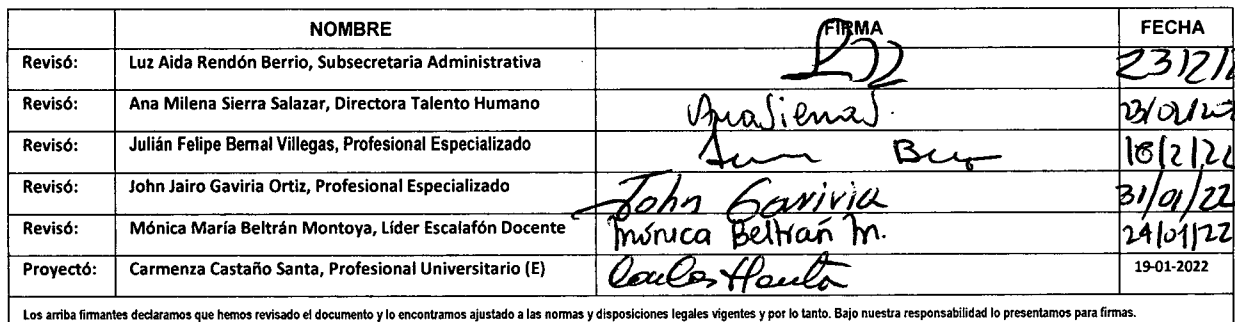 NOMBRE FIRMA FECHA
Revisó: Luz Aida Rendón Berrio, Subsecretaria Administrativa
Revisó: Ana Milena Sierra Salazar, Directora Talento Humano AnaSierraS.
Revisó: Julián Felipe Bernal Villegas, Profesional Especializado 18/2/22
Revisó: John Jairo Gaviria Ortiz, Profesional Especializado John Gaviria 31/01/22
Revisó: Mónica María Beltrán Montoya, Líder Escalafón Docente Mónica Beltrán M. 24/01/22
Proyectó: Carmenza Castaño Santa, Profesional Universitario (E) 19-01-2022
Los arriba firmantes declaramos que hemos revisado el documento y lo encontramos ajustado a las normas y disposiciones legales vigentes y por lo tanto. Bajo nuestra responsabilidad lo presentamos para firmas.